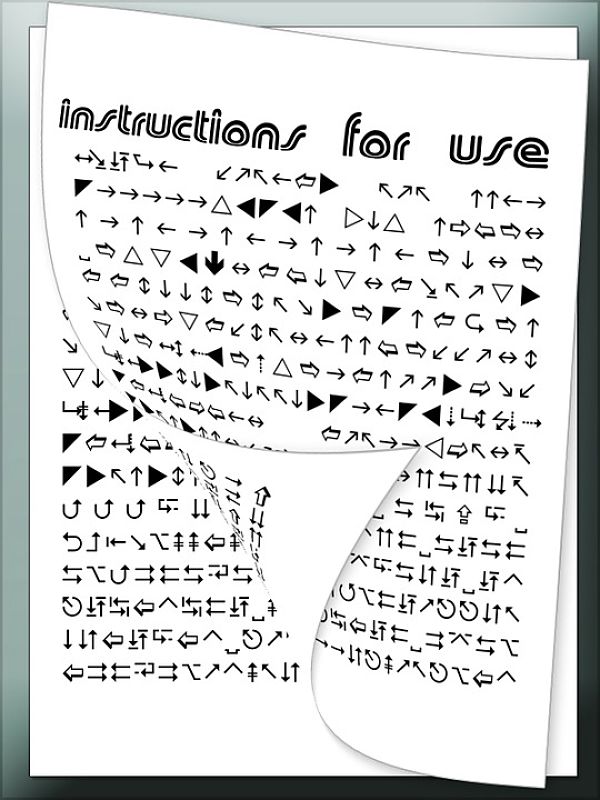 instructions for use